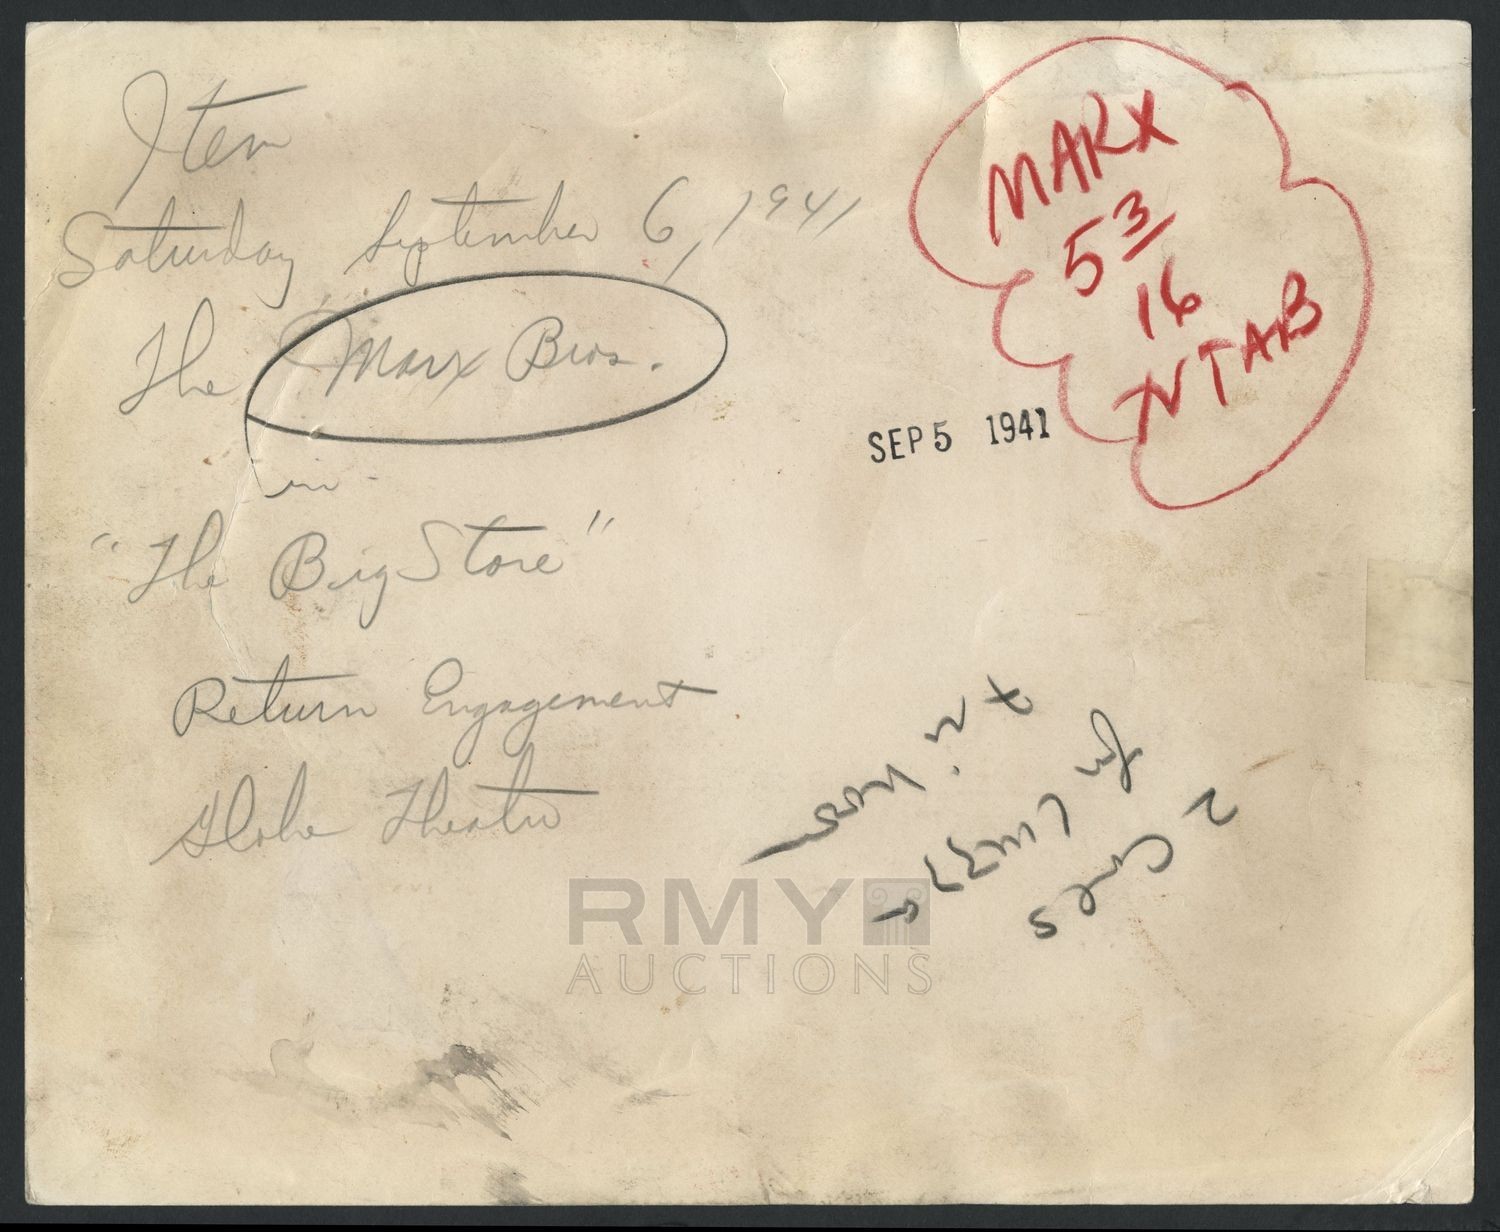 Item
Saturday September 6, 1941
The Marx Bros.
in
"The Big Store"
Return Engagement
Globe Theatre
MARX
5 3/
16
NTAB
SEP 5 1941
2 Cols
for
RMY
AUCTIONS